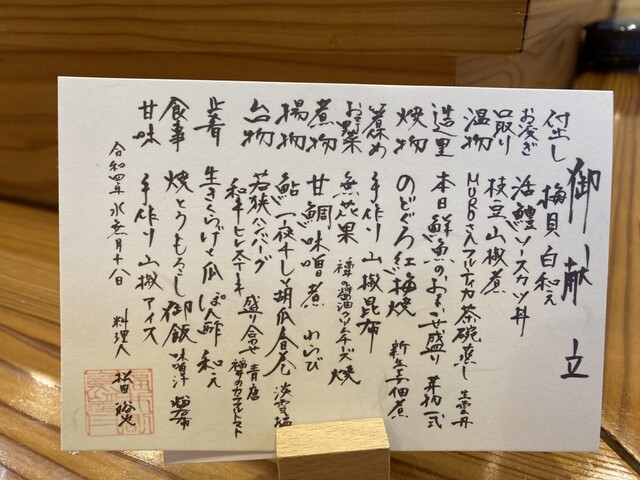 御献立
付出し 梅貝 白和え
お凌ぎ 活鱧ソースカツ丼
口取り 枝豆山椒煮
温物 MUROさんフルティカ茶碗蒸し 生雲丹
造里 本日鮮魚のおまかせ盛り 芽物一式
焼物 のどぐろ紅梅焼 新生姜佃煮
箸休め 手作り山椒昆布
お野菜 無花果 醤油クリームチーズ焼
煮物 甘鯛味噌煮 わらび
揚物 鮎一夜干しと胡瓜春巻 淡雪塩
台物 若狭ハンバーグ
和牛ヒレステーキ 盛り合わせ 青唐
止肴 生きくらげと瓜 ぽん酢和え
食事 焼とうもろこし御飯 味噌汁
甘味 手作り山椒アイス
令和四年水無月十八日
料理人 松田